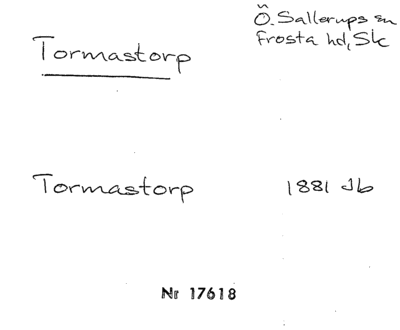 Tormastorp
Ö. Sallerups sn
Frosta hd, Sk
Tormastorp 1881 Jb
Nr 17618